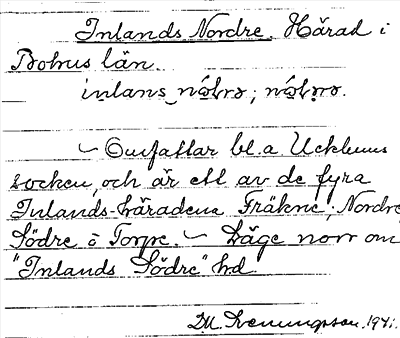 Inlands Nordre. Härad i
Bohus län.
inlans nórbrə; nórbrə.
~ Omfattar bl.a Ucklums
socken, och är ett av de fyra
Inlands-häradena Fräkne, Nordre
Södre o Torpe. ~ Läge norr om
"Inlands Södre" hd
1941.